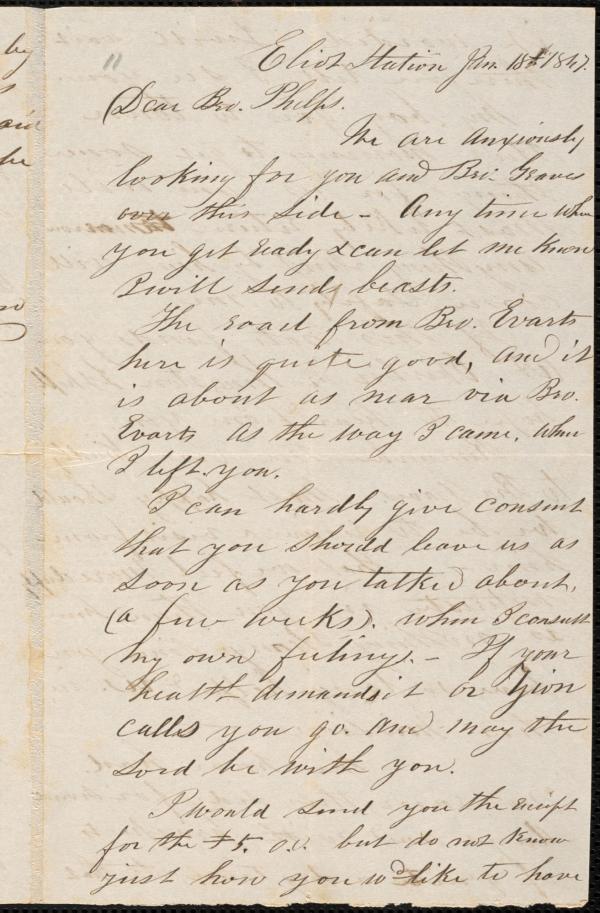 by
said
be
11
Eliot Station Jan. 18th 1847.
Dear Bro. Phelps.
We are anxiously
looking for you and Bro: Graves
over this side - Any time when
you get ready & can let me know
I will send beasts.
The road from Bro. Evarts
here is quite good, and it
is about as near via Bro.
Evarts as the way I came, when
I left you.
I can hardly give consent
that you should leave us as
soon as you talked about,
(a few weeks). when I consult
my own feelings. - If your
health demands it or Zion
calls you go. and may the
Lord be with you.
I would send you the receipt
for the $5. but do not know
just how you wd like to have